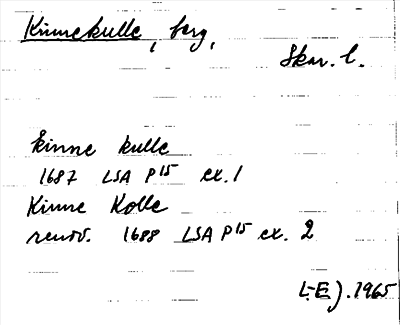 Kinnekulle, berg,
Skar. l.
kinne kulle
1687 LSA P15 ex. 1
Kinne Kolle
renov. 1688 LSA P15 ex. 2
L-E). 1965